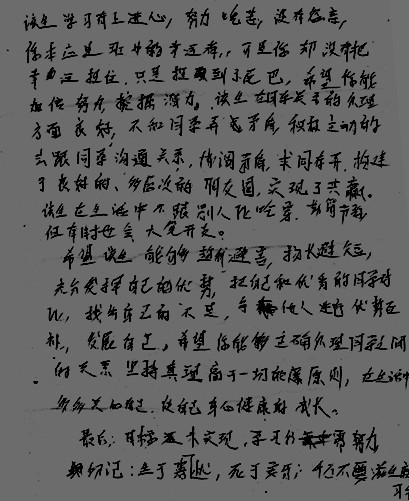 该生学习有上进心，努力吃苦，没有怨言，
你本应是班中的幸运者，可是你却没有把
幸运抓住，只是抓到了尾巴，希望你能
加倍努力挖掘潜力。该生在同学关系的处理
方面良好，不和同学弄气矛盾，积极主动的
去跟同学沟通关系，协调矛盾，求同存异，构建
了良好的、多层次的朋友圈，实现了共赢。
该生在生活中不跟别人比吃穿，
但有时也会大笔开支。
希望该生能够趋利避害，扬长避短，
充分发挥自己的优势，把自己和优秀的同学对
比，找出自己的不足，与他人进行优势互
补，发展自己，希望你能够正确处理同学之间
的关系，坚持真理高于一切的原则，在生活中
多多关心自己，使自己身心健康的成长。
最后：目标还未实现，学子仍需努力
期切记：生于忧患，死于安乐；千万不要